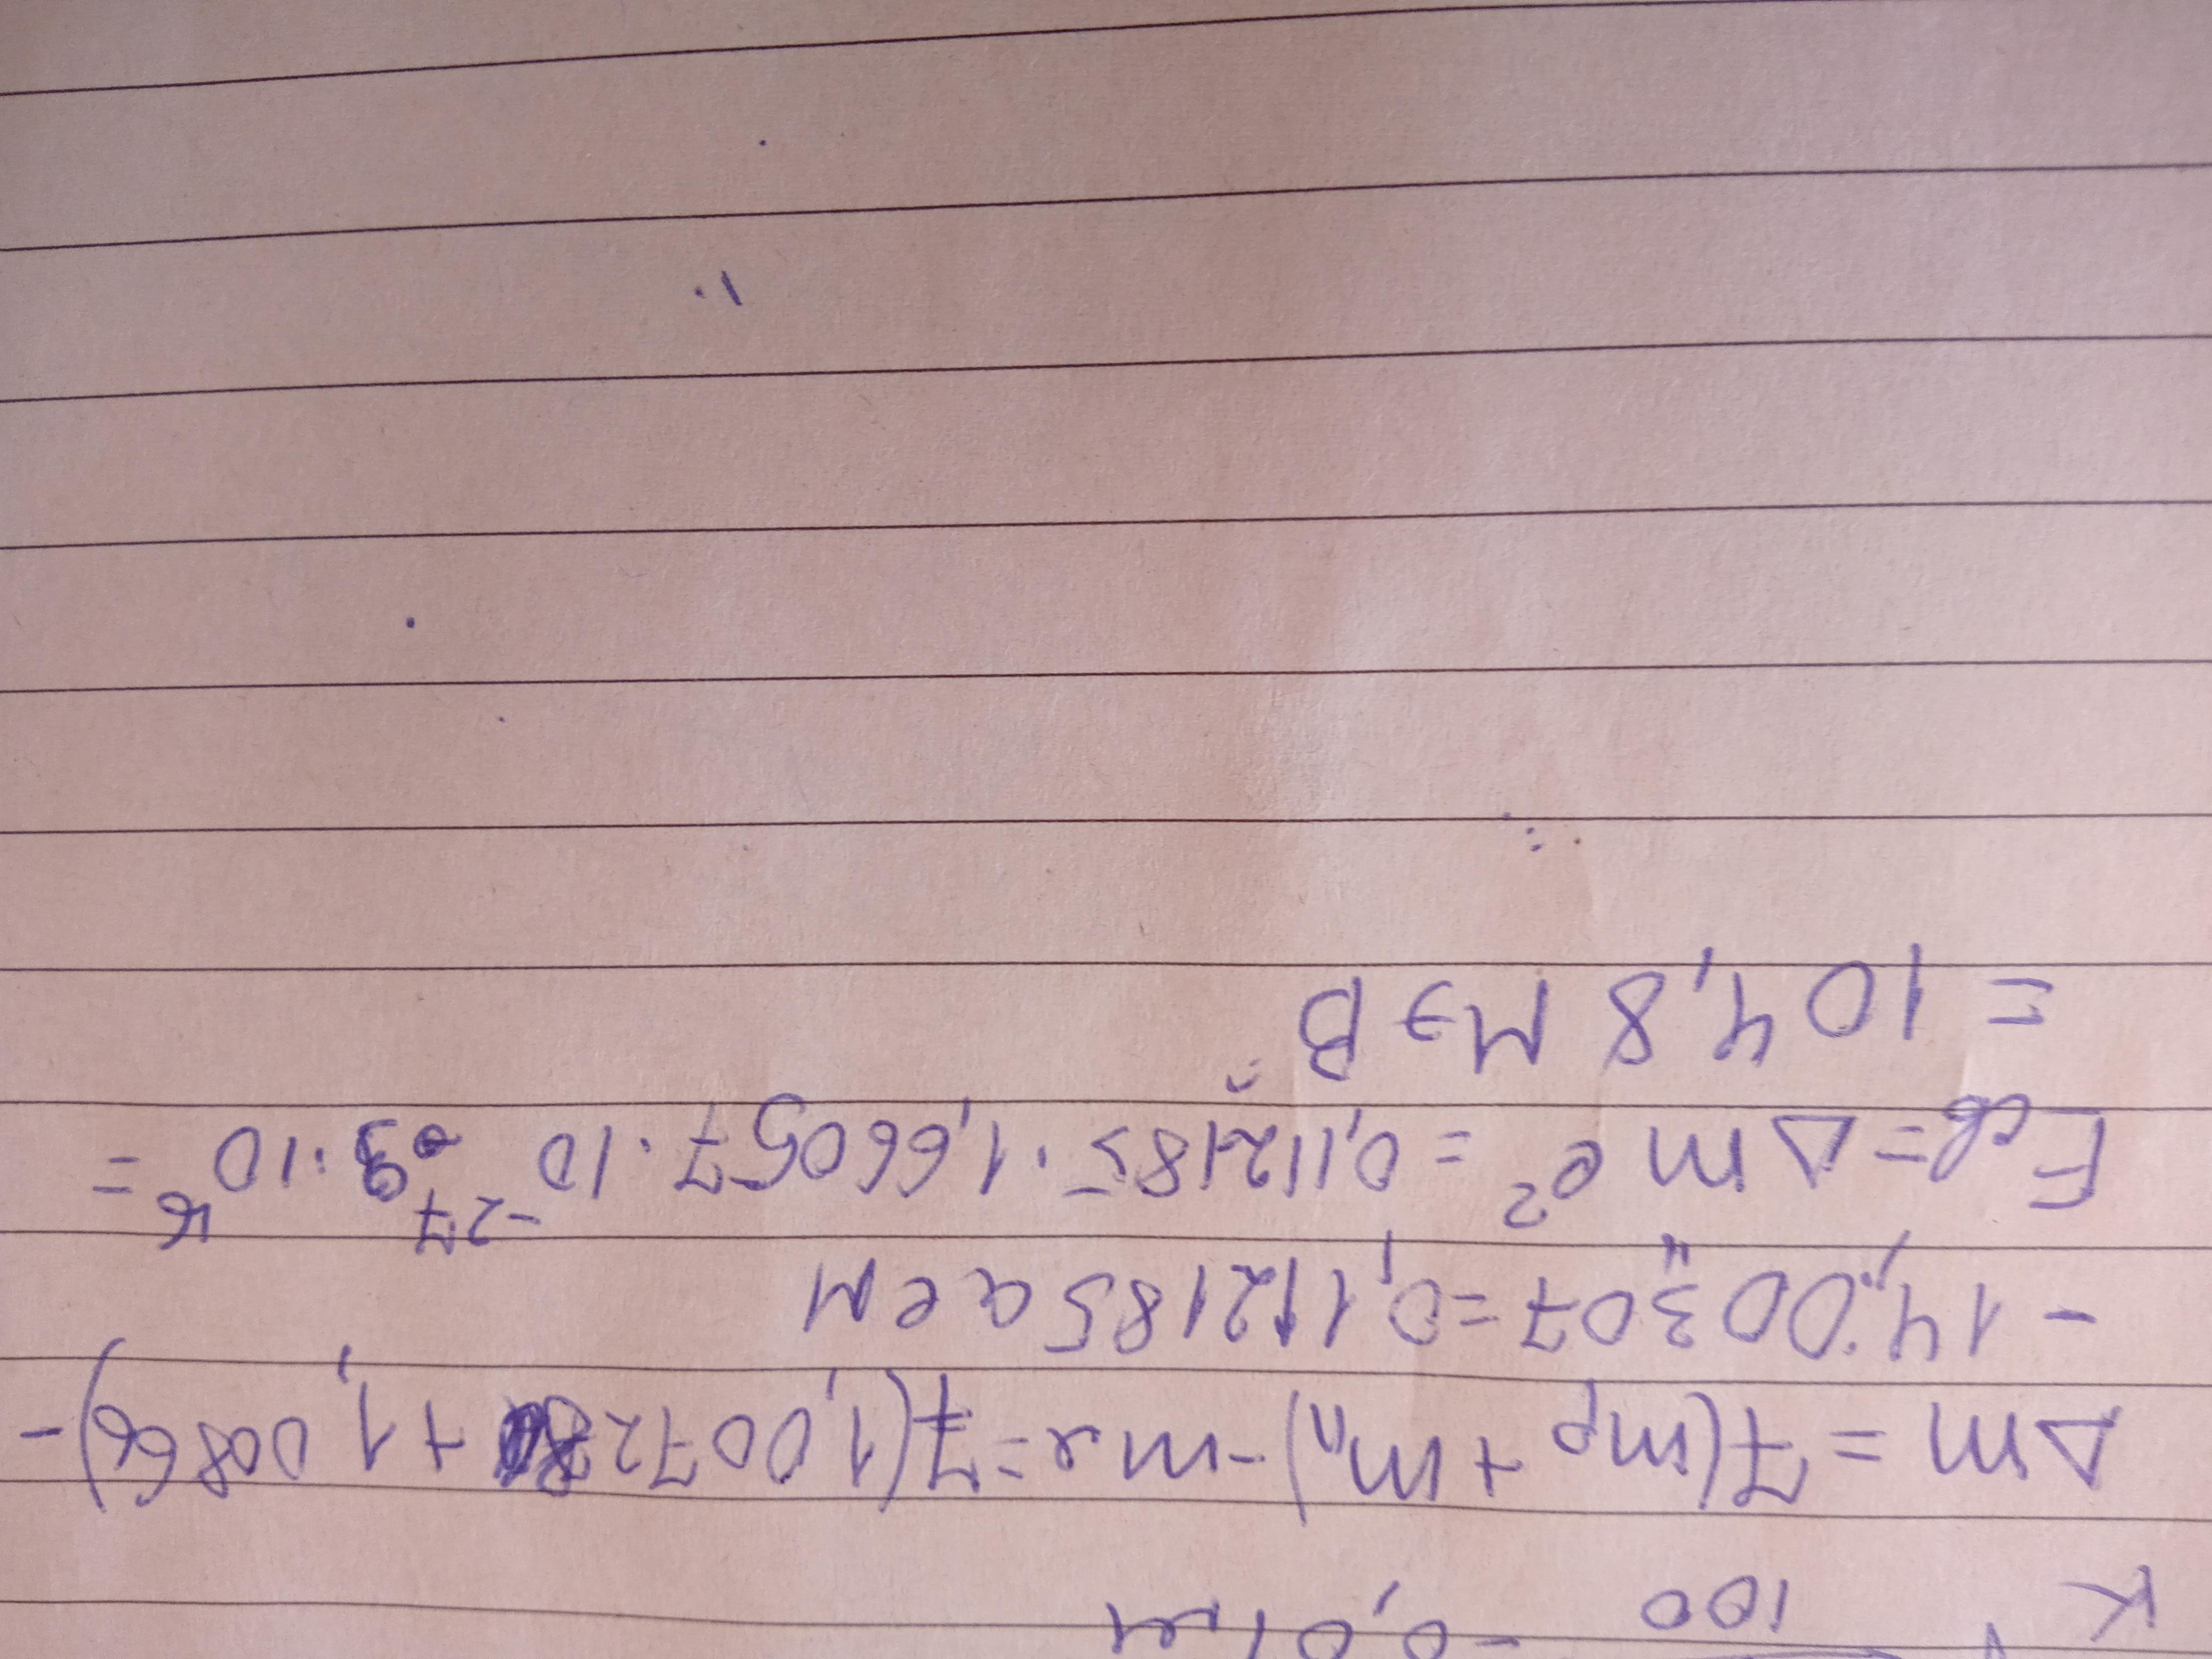 K 100 = 0,01
Δm = 7(mp + mn) - mя = 7(1,00728 + 1,00866) -
- 14,00307 = 0,112185 а е м
Eсв = Δ m c² = 0,112185 · 1,66057 · 10⁻²⁷ · 9 · 10¹⁶ =
= 104,8 МэВ